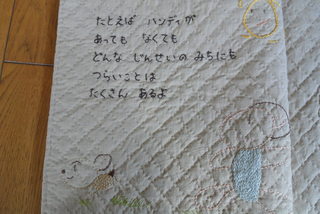 たとえば ハンディが
あっても なくても
どんな じんせいの みちにも
つらいことは
たくさん あるよ